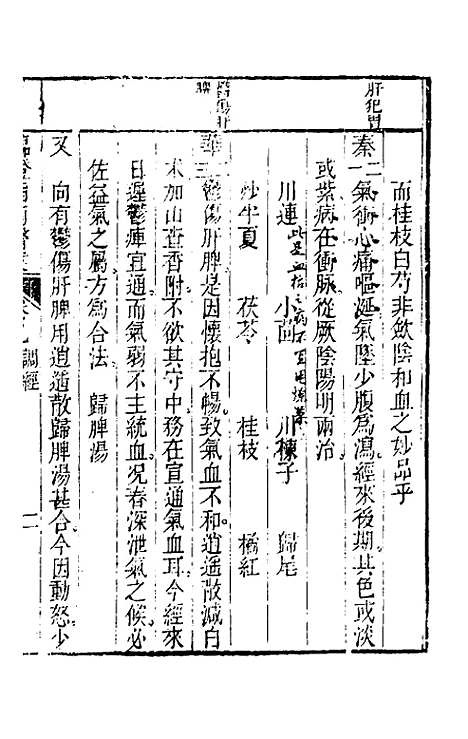 肝犯胃
而桂枝白芍非歛陰和血之妙品乎
秦二一氣衝心痛嘔涎氣墜少腹為瀉經來後期其色或淡
或紫病在衝脈從厥陰陽明兩治
川連 小茴 川楝子 歸尾
炒半夏 茯苓 桂枝 橘紅
鬱傷肝脾
華二三鬱傷肝脾是因懷抱不暢致氣血不和逍遙散減白
术加山查香附不欲其守中務在宣通氣血耳今經來
日遲鬱痺宜通而氣弱不主統血况春深泄氣之候必
佐益氣之屬方為合法 歸脾湯
又 向有鬱傷肝脾用逍遙散歸脾湯甚合今因動怒少
臨證指南醫案 卷九 調經 二